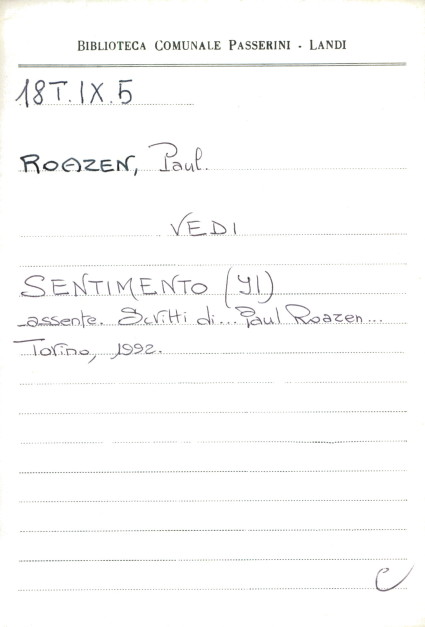 BIBLIOTECA COMUNALE PASSERINI - LANDI
18T.IX.5
ROAZEN, Paul.
VEDI
SENTIMENTO (Il)
assente. Scritti di... Paul Roazen...
Torino, 1992.
C